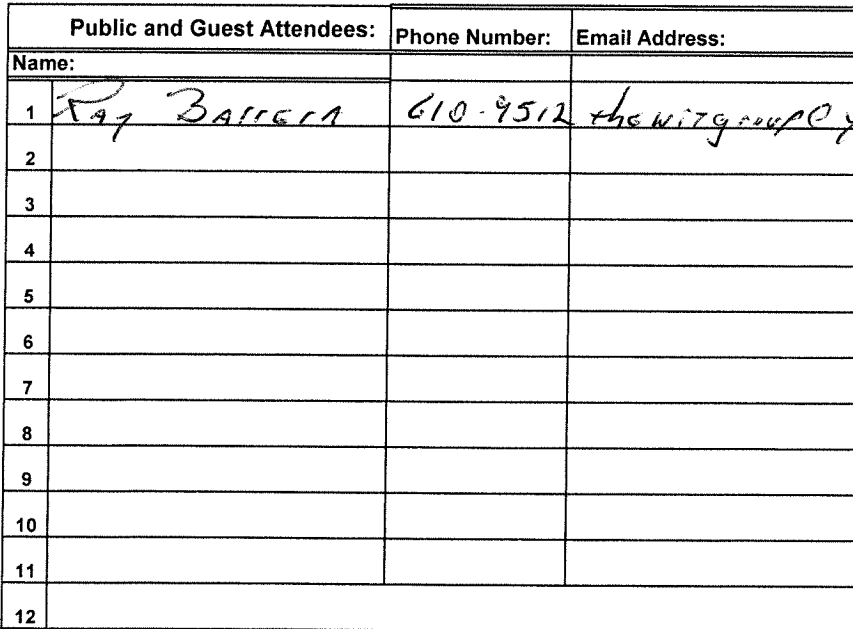 Public and Guest Attendees: Phone Number: Email Address:
Name:
1 Ray Barrera 610-9512 thewitgroup@y
2
3
4
5
6
7
8
9
10
11
12